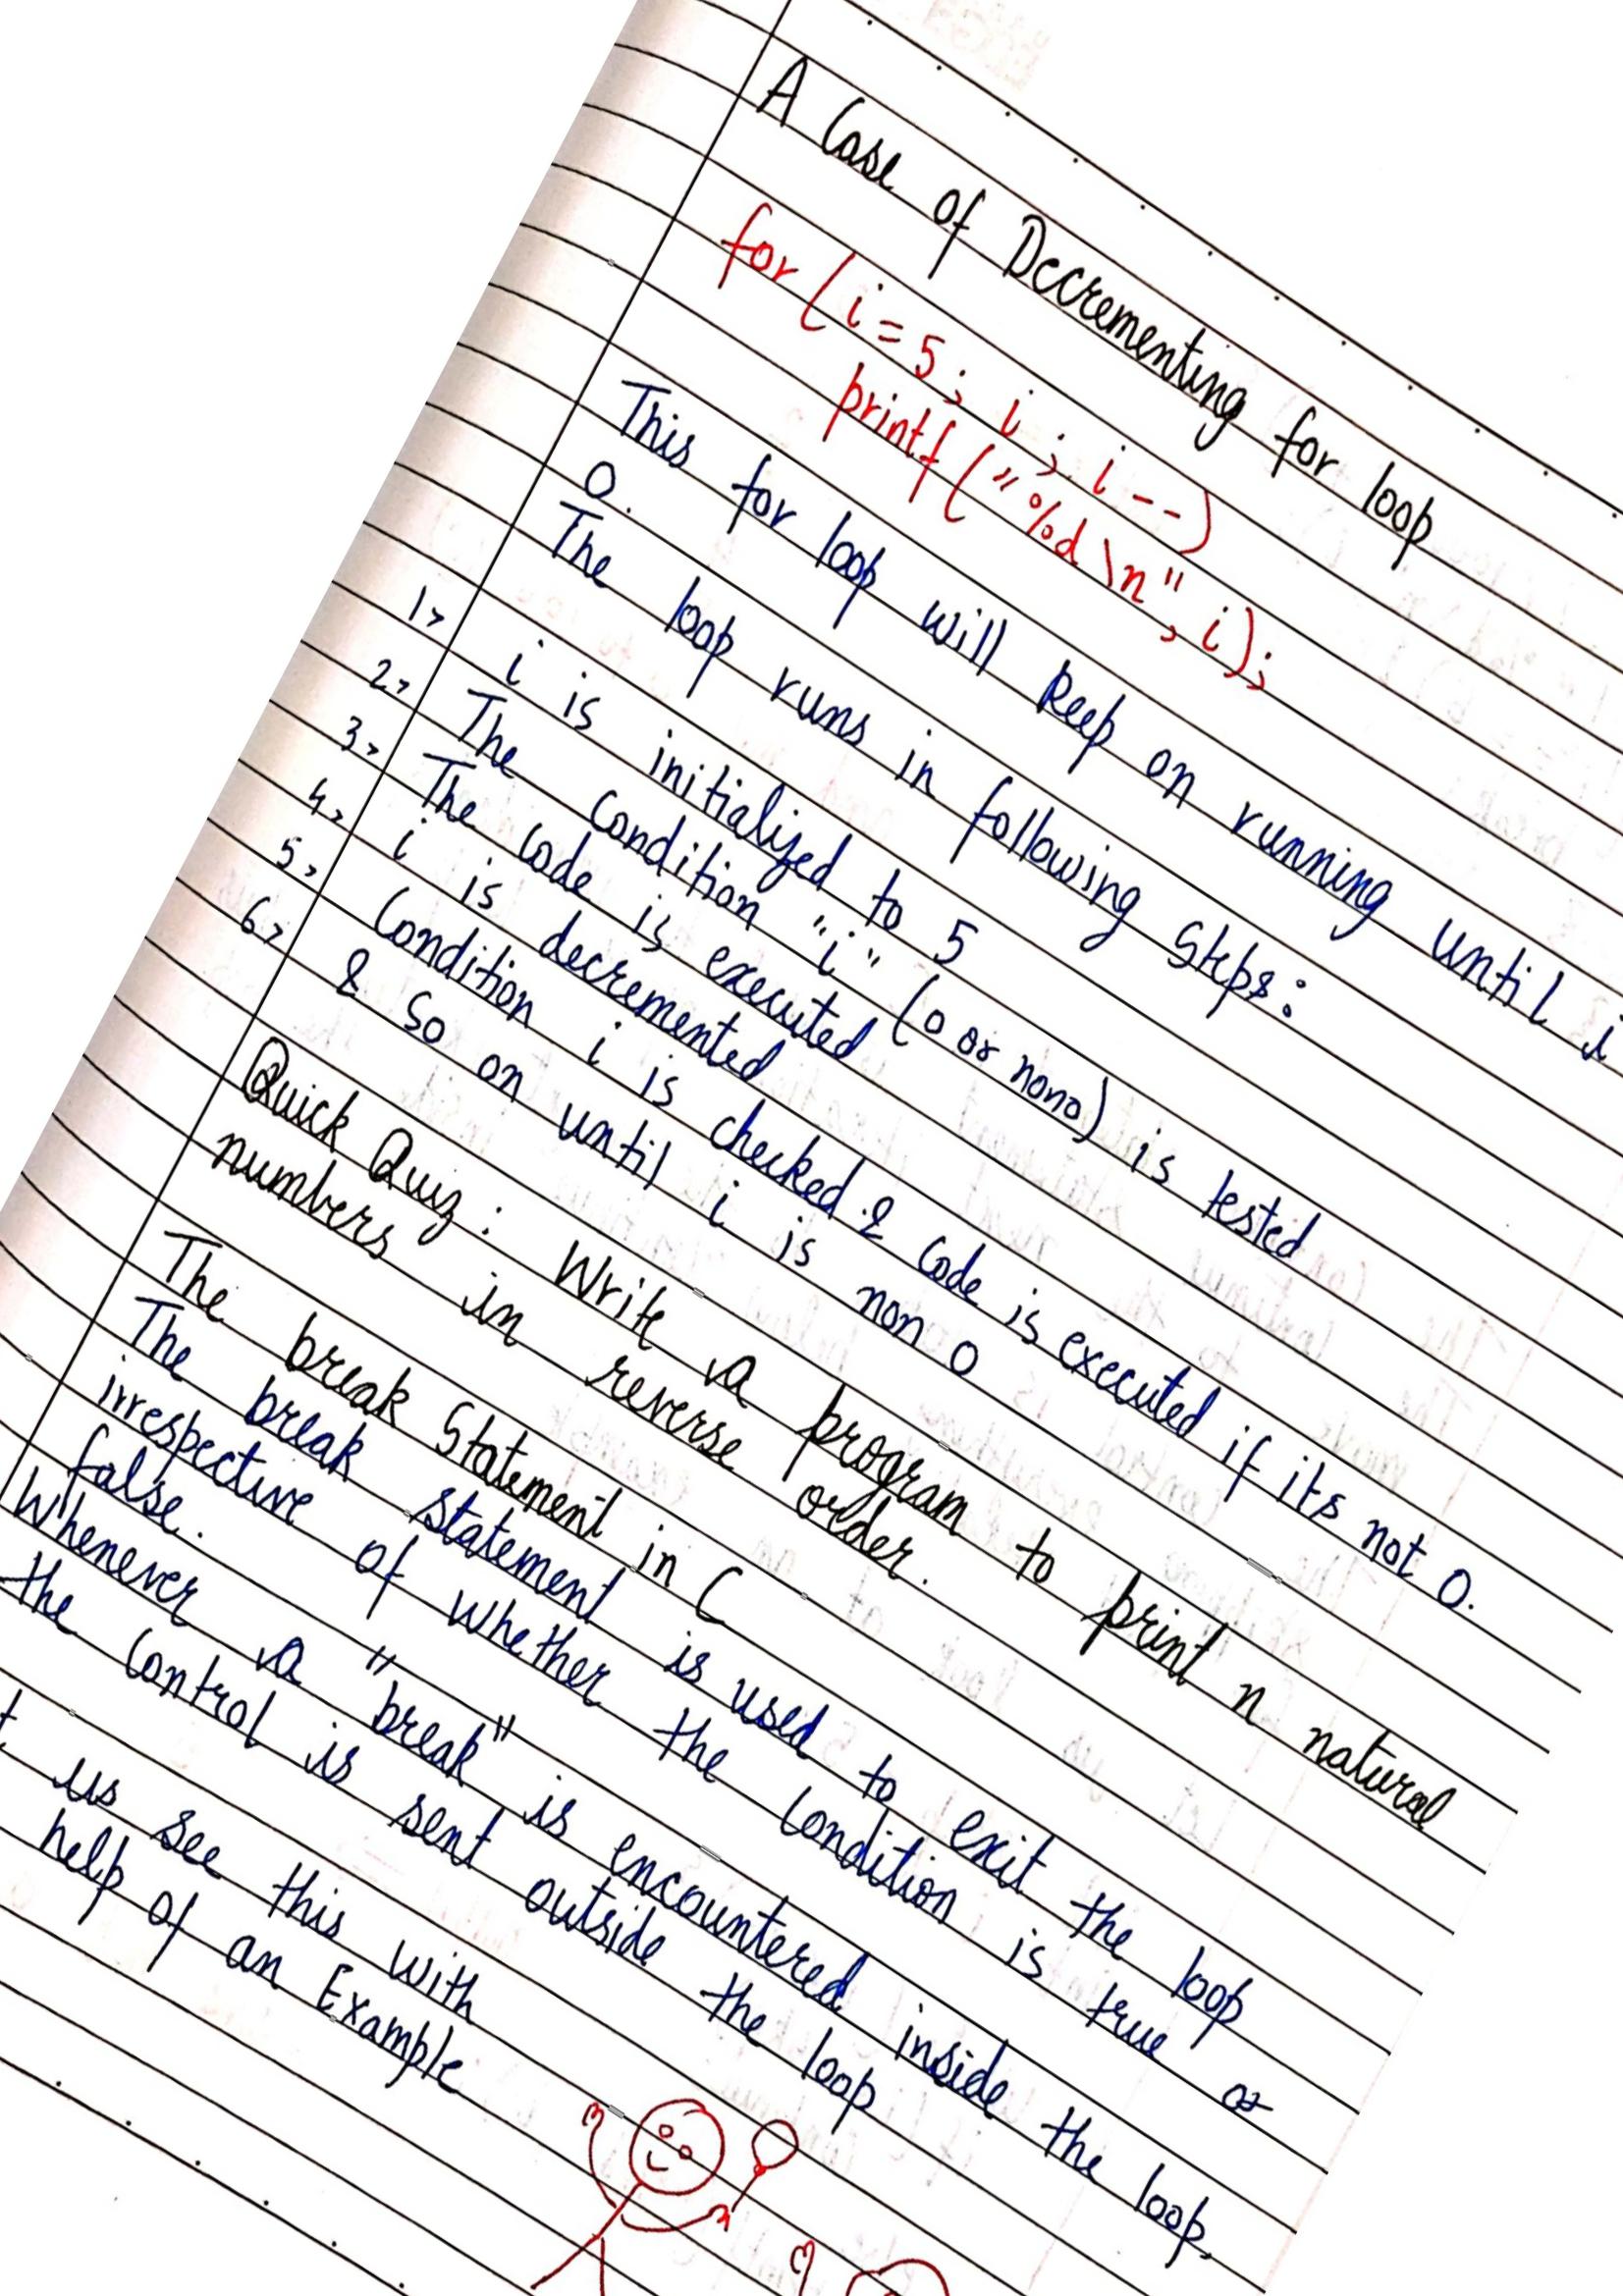 A Case of Decrementing for loop
for (i = 5; i ; i --)
printf ("%d \n", i);
This for loop will keep on running until i
0.
The loop runs in following steps:
1> i is initialized to 5
2> The condition "i" (0 or non0) is tested
3> The code is executed
4> i is decremented
5> Condition i is checked & code is executed if its not 0.
6> & so on until i is non 0
Quick Quiz: Write a program to print n natural
numbers in reverse order.
The break Statement in C
The break statement is used to exit the loop
irrespective of whether the condition is true or
false.
Whenever a "break" is encountered inside the loop,
the control is sent outside the loop
us see this with
help of an Example